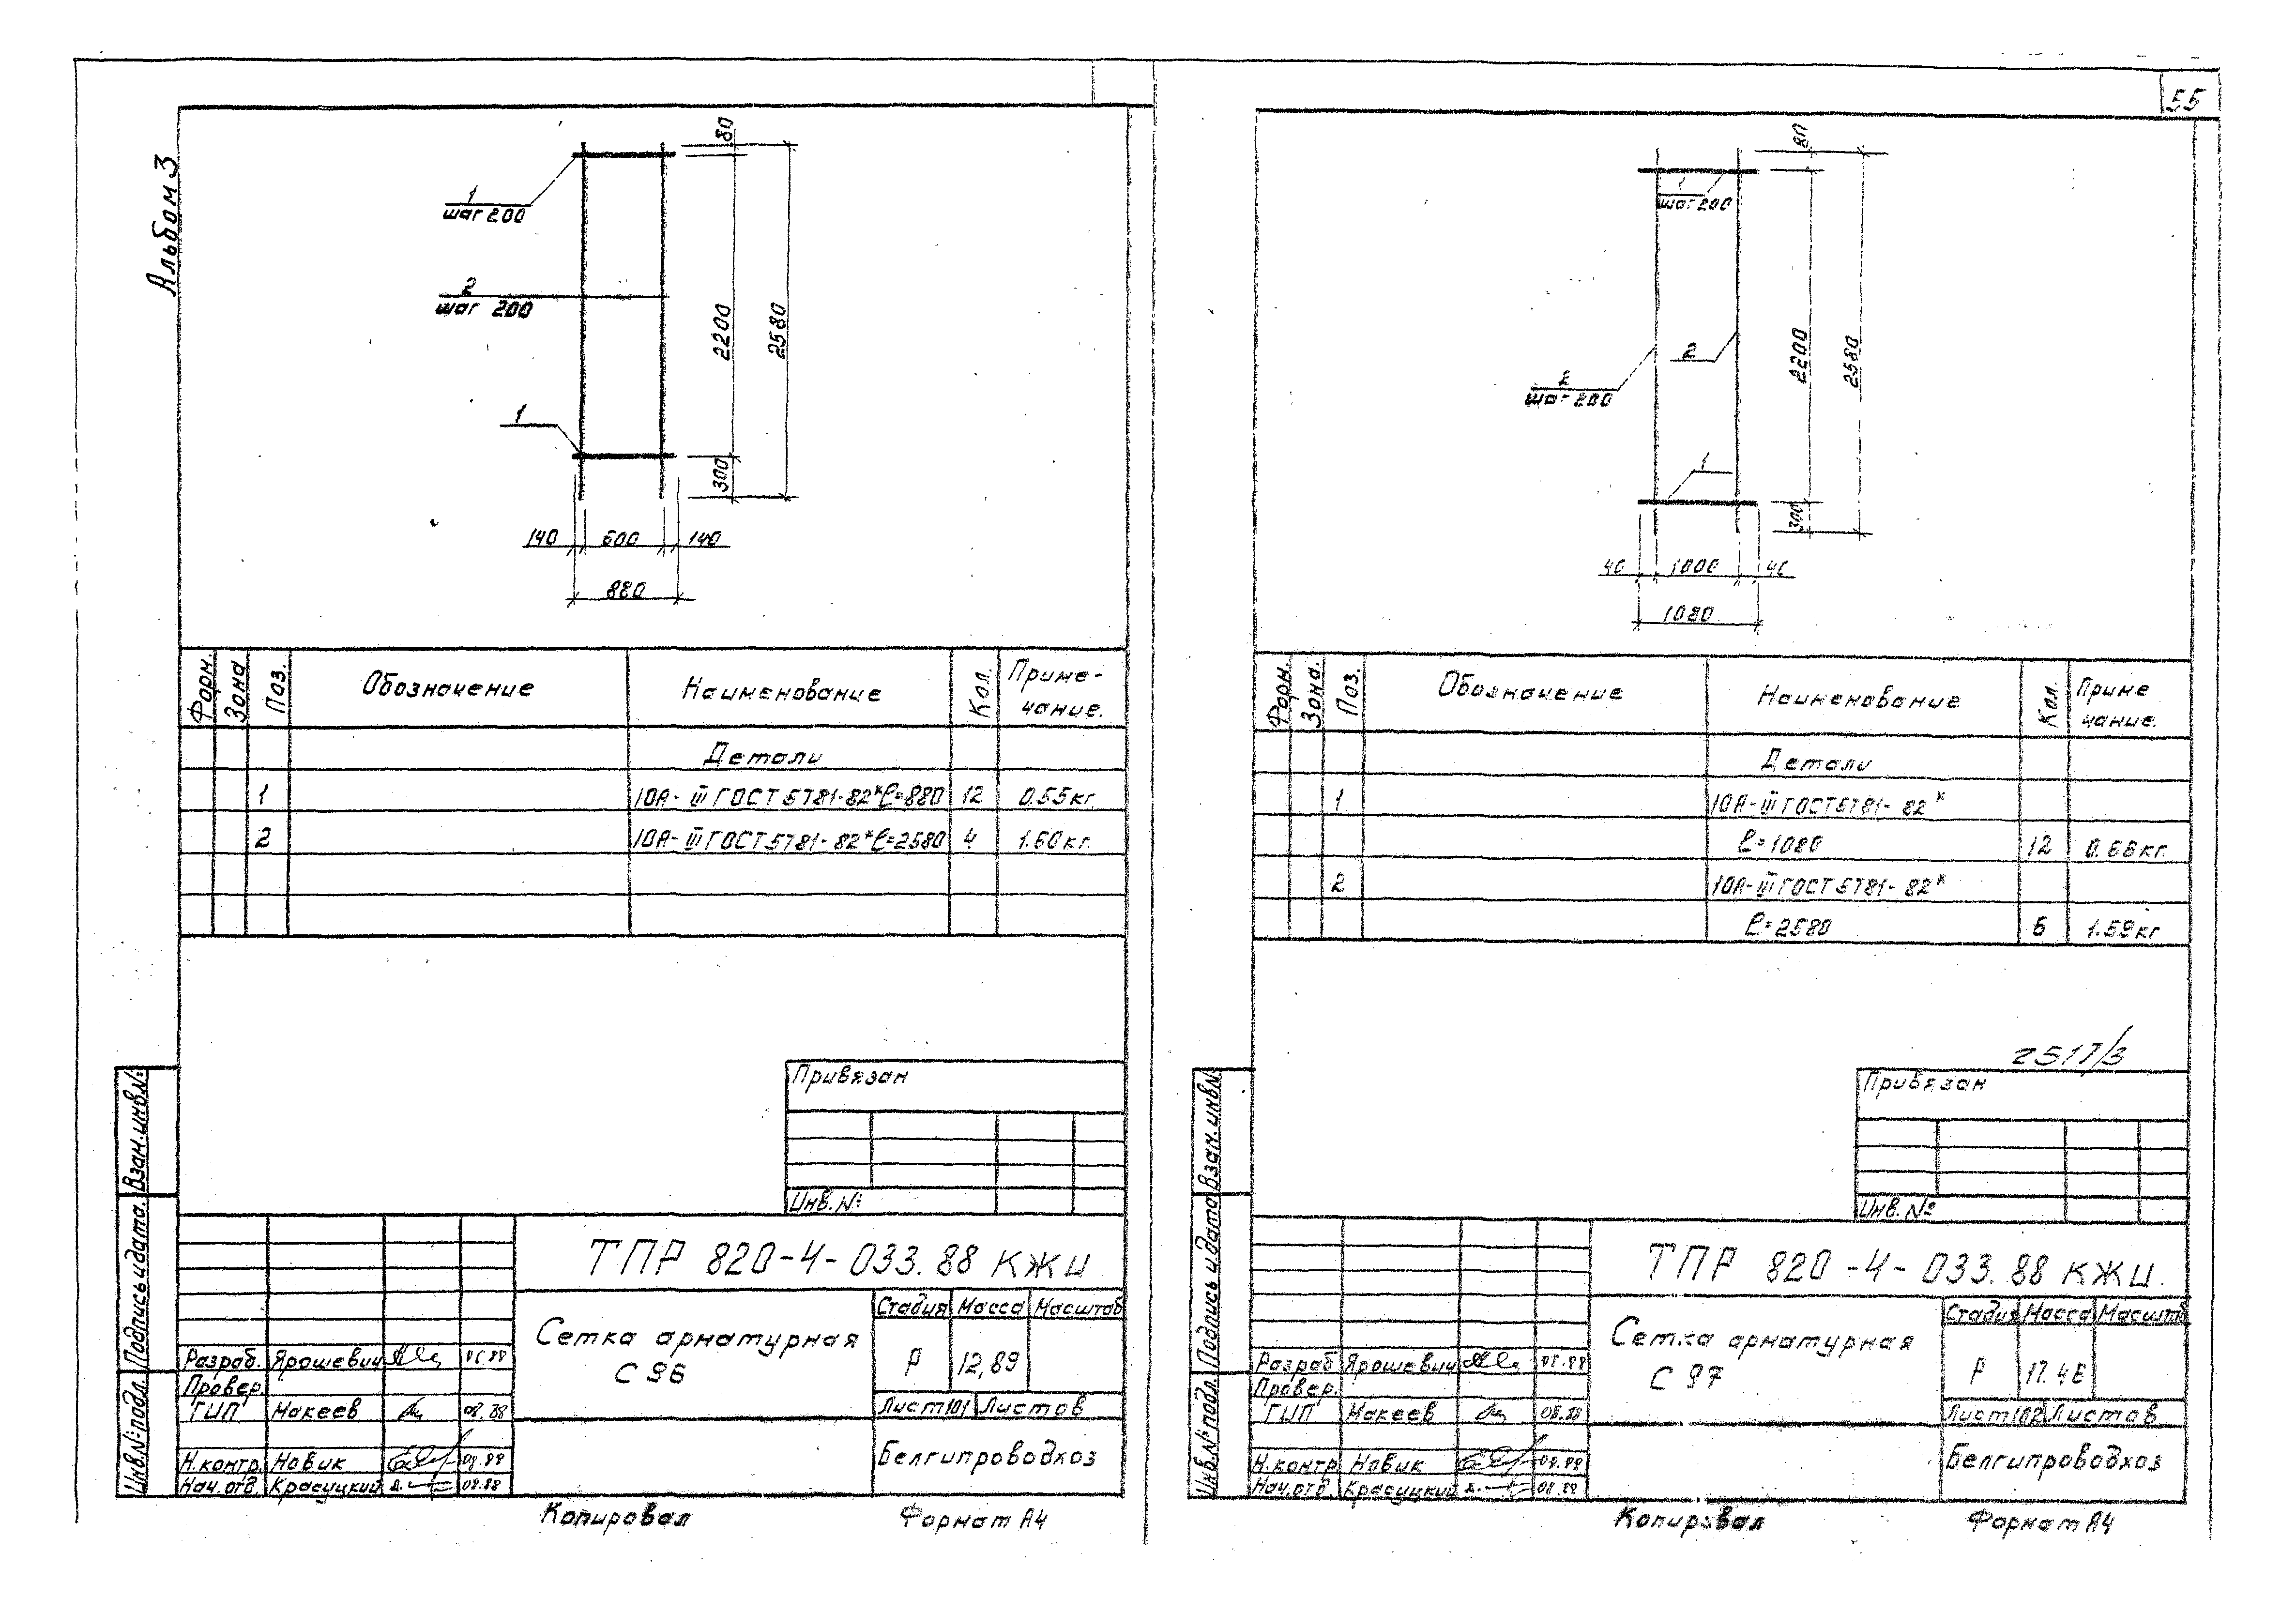 Альбом 3
80
1
шаг 200
2
шаг 200
2200
2580
1
300
140 600 140
880
Форм.
Зона
Поз.
Обозначение
Наименование
Кол.
Приме-
чание.
Детали
1 10А-III ГОСТ 5781-82* ℓ=880 12 0.55кг.
2 10А-III ГОСТ 5781-82* ℓ=2580 4 1.60кг.
Привязан
Инв. №:
Взам.инв.№:
Подпись и дата.
Инв.№:подл.
ТПР 820-4-033.88 КЖИ
Сетка арматурная
С 96
Стадия Масса Масштаб
Р 12,89
Лист 101 Листов
Белгипроводхоз
Разраб. Ярошевич
Провер.
ГИП Макеев 08.88
Н.контр. Новик 08.88
Нач.отд. Красуцкий 08.88
Копировал Формат А4
55
80
1
шаг 200
2
шаг 200
2
2200
2580
1
300
40 1000 40
1080
Форм.
Зона.
Поз.
Обозначение
Наименование
Кол.
Приме
чание.
Детали
1 10А-III ГОСТ 5781-82*
ℓ=1080 12 0.66кг.
2 10А-III ГОСТ 5781-82*
ℓ=2580 6 1.59кг
2517/3
Привязан
Инв. №
Взам.инв.№
Подпись и дата
Инв.№:подл.
ТПР 820-4-033.88 КЖИ.
Сетка арматурная
С 97
Стадия Масса Масштаб
Р
Лист 102 Листов
Белгипроводхоз
Разраб Ярошевич 08.88
Провер.
ГИП Макеев 08.88
Н.контр Новик 08.88
Нач.отд. Красуцкий 08.88
Копировал Формат А4